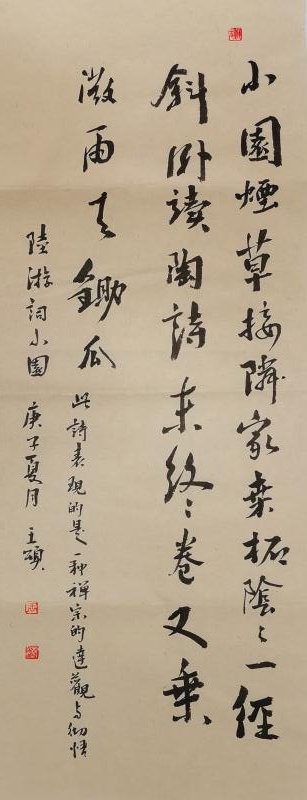 小園煙草接隣家桑柘陰〻一徑
斜卧讀陶詩未終〻卷又乗
微雨去鋤瓜
此詩表現的是一种禪宗的達觀与
陸游詞小園 庚子夏月